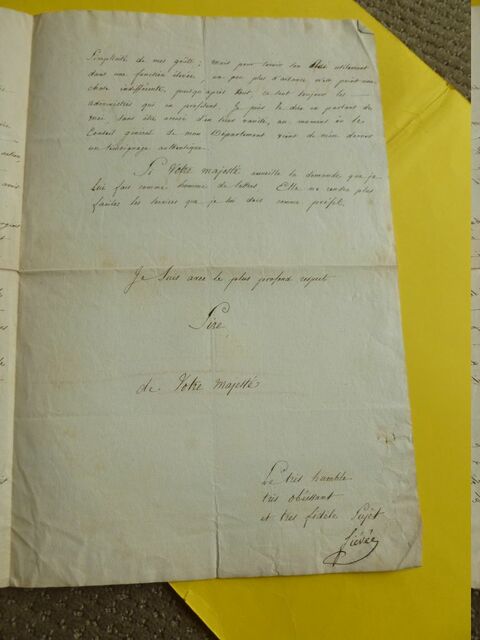 simplicité de mes goûts; mais pour servir son Roi utilement
dans une fonction élevée, un peu plus d'aisance n'est point une
chose indifférente, puisqu'après tout, ce sont toujours les
administrés qui en profitent. Je puis le dire en parlant de
moi sans être accusé d'un tien vanité, au moment où le
Conseil général de mon Département vient de m'en donner
un témoignage authentique.
Si Votre majesté accueille la demande que je
lui fais comme homme de lettres Elle me rendra plus
faciles les services que je lui dois comme préfet.
Je suis avec le plus profond respect
Sire
de Votre majesté
Le très humble
très obéissant
et très fidèle Sujet
Fiévée